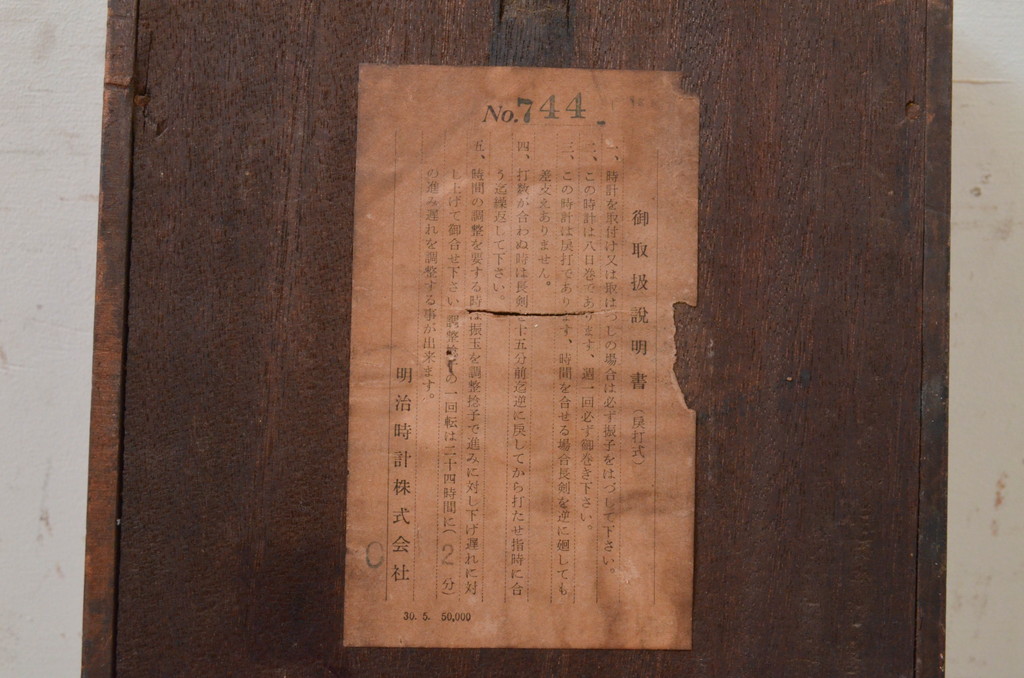 No.744
御取扱説明書(戻打式)
一、時計を取付け又は取はづしの場合は必ず振子をはづして下さい。
二、この時計は八日巻であります、週一回必ず御巻き下さい。
三、この時計は戻打であります、時間を合せる場合長剣を逆に廻しても
差支えありません。
四、打数が合わぬ時は長剣 十五分前迄逆に戻してから打たせ指時に合
う迄繰返して下さい。
五、時間の調整を要する時は振玉を調整捻子で進みに対し下げ遅れに対
し上げて御合せ下さい 調整捻子の一回転は二十四時間に(2分)
の進み遅れを調整する事が出来ます。
明治時計株式会社
0
30. 5. 50,000